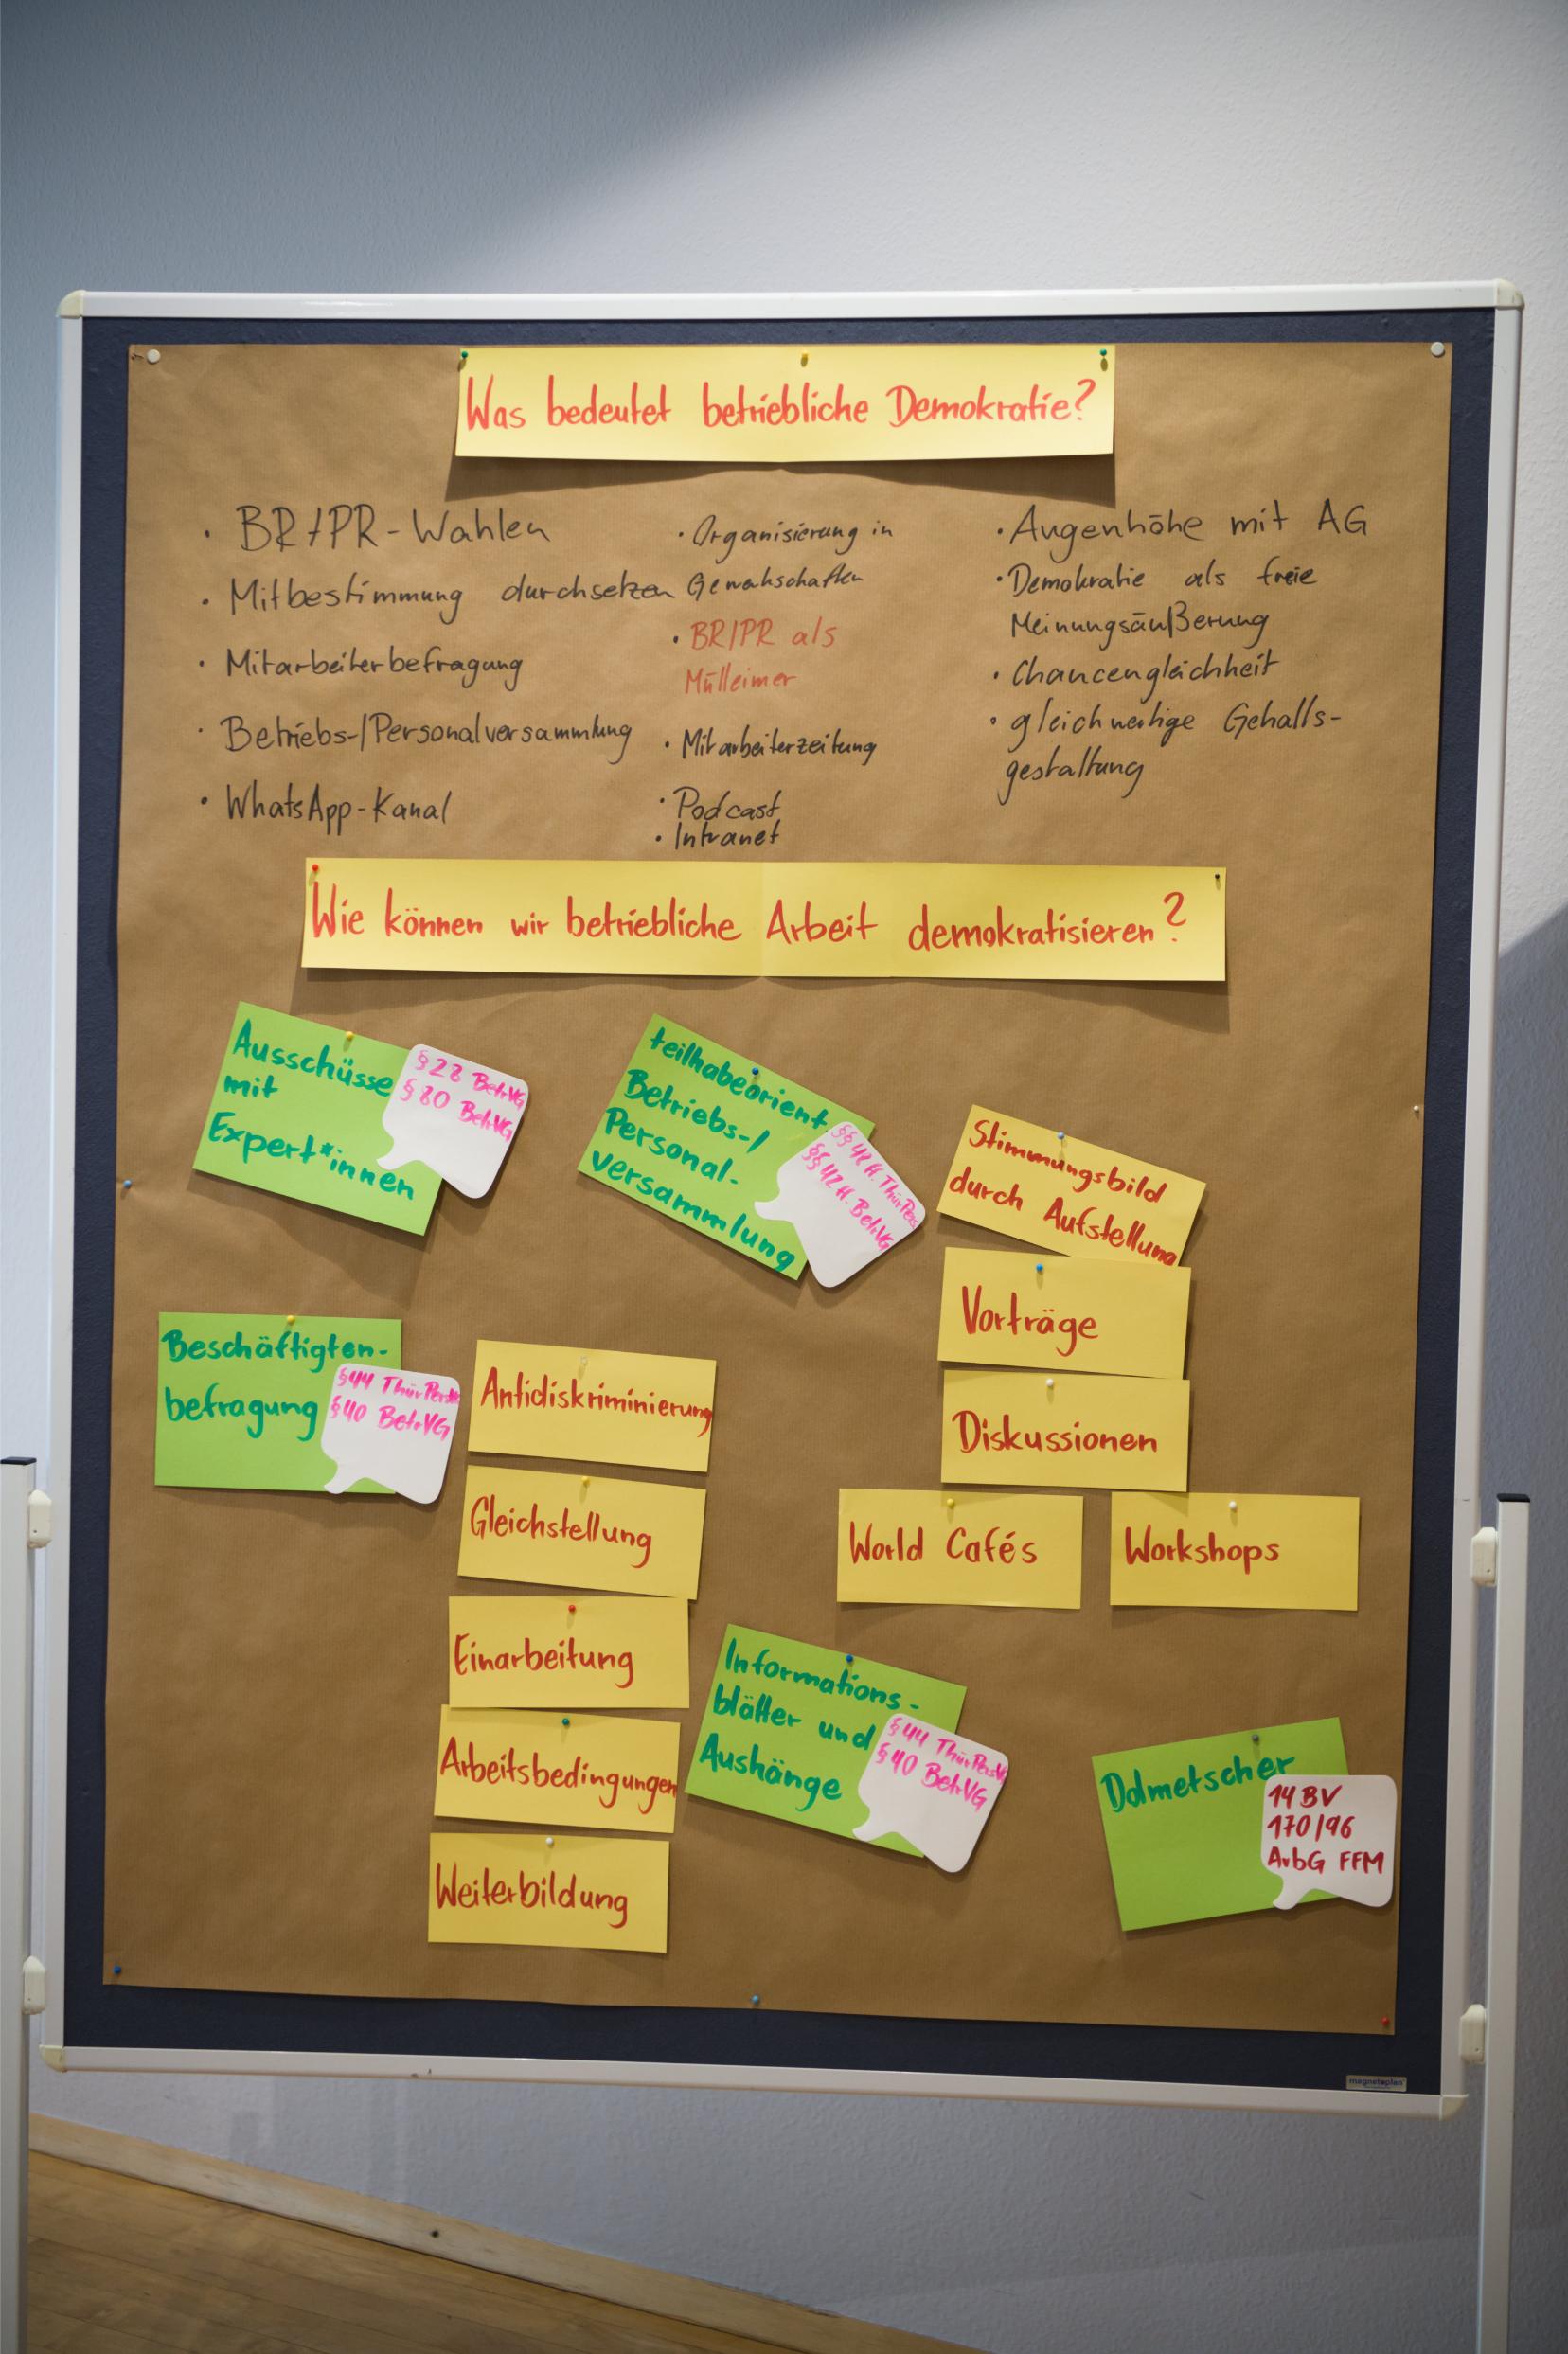 Was bedeutet betriebliche Demokratie?
· BR+PR-Wahlen
· Mitbestimmung durchsetzen
· Mitarbeiterbefragung
· Betriebs-/Personalversammlung
· WhatsApp-Kanal
· Organisierung in
Gewerkschaften
· BR/PR als
Mülleimer
· Mitarbeiterzeitung
· Podcast
· Intranet
· Augenhöhe mit AG
· Demokratie als freie
Meinungsäußerung
· Chancengleichheit
· gleichwertige Gehalts-
gestaltung
Wie können wir betriebliche Arbeit demokratisieren?
Ausschüsse
mit
Expert*innen
§28 BetrVG
§80 BetrVG
teilhabeorient.
Betriebs-/
Personal-
versammlung
§§ 42 ff. BetrVG
Stimmungsbild
durch Aufstellung
Vorträge
Diskussionen
World Cafés
Workshops
Beschäftigten-
befragung
§44 ThürPersVG
§40 BetrVG
Antidiskriminierung
Gleichstellung
Einarbeitung
Arbeitsbedingungen
Weiterbildung
Informations-
blätter und
Aushänge
§44 ThürPersVG
§40 BetrVG
Dolmetscher
14 BV
170/96
ArbG FFM
magnetoplan